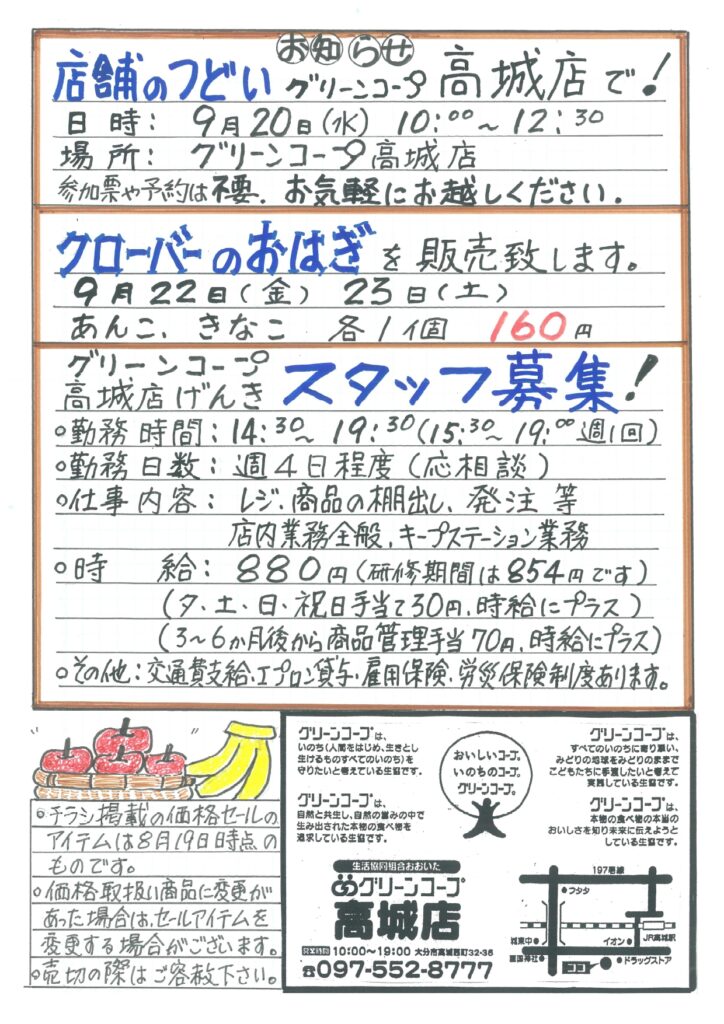 お知らせ
店舗のつどい グリーンコープ 高城店で!
日時: 9月20日(水) 10:00~12:30
場所: グリーンコープ高城店
参加票や予約は不要。お気軽にお越しください。
クローバーのおはぎを販売致します。
9月22日(金) 23日(土)
あんこ、きなこ 各1個 160円
グリーンコープ
高城店げんき スタッフ募集!
○勤務時間:14:30~19:30(15:30~19:00週1回)
○勤務日数:週4日程度(応相談)
○仕事内容:レジ、商品の棚出し、発注 等
店内業務全般、キープステーション業務
○時 給:880円(研修期間は854円です)
(夕・土・日・祝日手当て30円、時給にプラス)
(3~6か月後から商品管理手当70円、時給にプラス)
○その他:交通費支給・エプロン貸与・雇用保険・労災保険制度あります。
○チラシ掲載の価格セールの
アイテムは8月19日時点の
ものです。
○価格、取扱い商品に変更が
あった場合は、セールアイテムを
変更する場合がございます。
○売切の際はご容赦下さい。
グリーンコープは、
いのち(人間をはじめ、生きとし
生けるものすべてのいのち)を
守りたいと考えている生協です。
グリーンコープは、
自然と共生し、自然の営みの中で
生み出された本物の食べ物を
追求している生協です。
おいしいコープ。
いのちのコープ。
グリーンコープ。
グリーンコープは、
すべてのいのちに寄り添い、
みどりの地球をみどりのままで
こどもたちに手渡したいと考えて
実践している生協です。
グリーンコープは、
本物の食べ物の本当の
おいしさを知り未来に伝えようと
している生協です。
生活協同組合おおいた
グリーンコープ
高城店
営業時間 10:00~19:00 大分市高城西町32-36
☎097-552-8777
197号線
フタタ
城東中
イオン
JR高城駅
護国神社
ココ
ドラッグストア